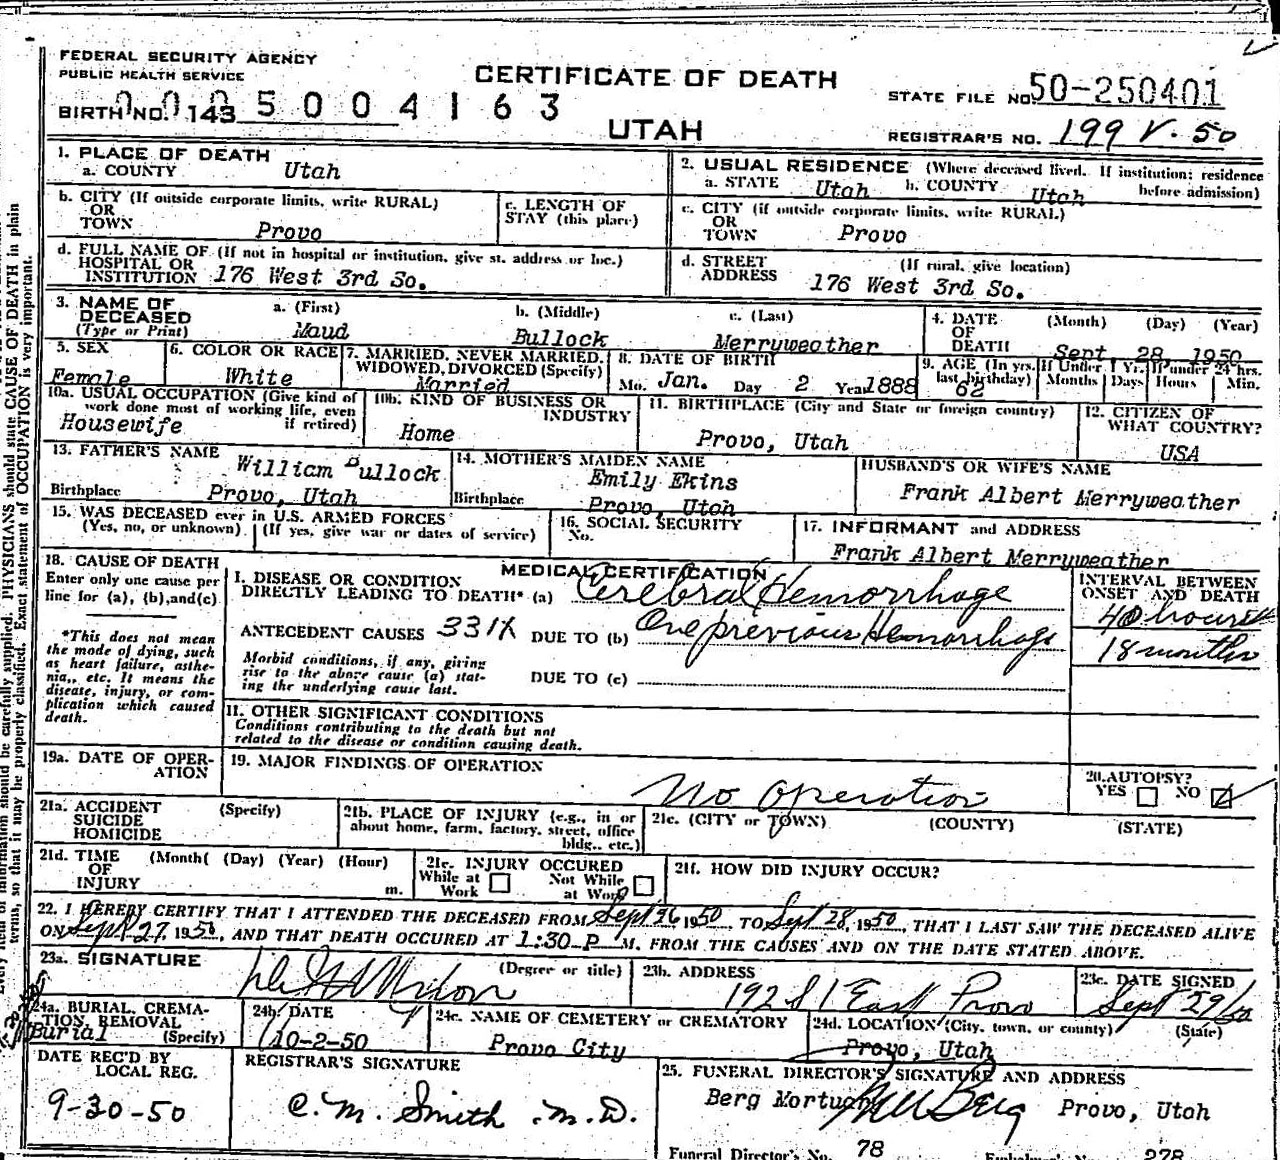 FEDERAL SECURITY AGENCY
PUBLIC HEALTH SERVICE
CERTIFICATE OF DEATH
STATE FILE NO. 50-250401
BIRTH NO. 143 0005004163
UTAH
REGISTRAR'S NO. 199 V. 50
1. PLACE OF DEATH
a. COUNTY Utah
2. USUAL RESIDENCE (Where deceased lived. If institution: residence before admission)
a. STATE Utah b. COUNTY Utah
b. CITY (If outside corporate limits, write RURAL) OR TOWN Provo
c. LENGTH OF STAY (this place)
c. CITY (if outside corporate limits, write RURAL) OR TOWN Provo
d. FULL NAME OF (If not in hospital or institution, give st. address or loc.) HOSPITAL OR INSTITUTION 176 West 3rd So.
d. STREET ADDRESS (If rural, give location) 176 West 3rd So.
3. NAME OF DECEASED (Type or Print)
a. (First) Maud
b. (Middle) Bullock
c. (Last) Merryweather
4. DATE OF DEATH (Month) (Day) (Year) Sept. 28, 1950
5. SEX Female
6. COLOR OR RACE White
7. MARRIED, NEVER MARRIED, WIDOWED, DIVORCED (Specify) Married
8. DATE OF BIRTH Mo. Jan. Day 2 Year 1888
9. AGE (In yrs. last birthday) 62
If Under 1 Yr. Months Days
If under 24 hrs. Hours Min.
10a. USUAL OCCUPATION (Give kind of work done most of working life, even if retired) Housewife
10b. KIND OF BUSINESS OR INDUSTRY Home
11. BIRTHPLACE (City and State or foreign country) Provo, Utah
12. CITIZEN OF WHAT COUNTRY? USA
13. FATHER'S NAME William Bullock
Birthplace Provo, Utah
14. MOTHER'S MAIDEN NAME Emily Ekins
Birthplace Provo, Utah
HUSBAND'S OR WIFE'S NAME Frank Albert Merryweather
15. WAS DECEASED ever in U.S. ARMED FORCES (Yes, no, or unknown) (If yes, give war or dates of service)
16. SOCIAL SECURITY No.
17. INFORMANT and ADDRESS Frank Albert Merryweather
18. CAUSE OF DEATH
Enter only one cause per line for (a), (b),and(c)
*This does not mean the mode of dying, such as heart failure, asthenia,, etc. It means the disease, injury, or complication which caused death.
MEDICAL CERTIFICATION
I. DISEASE OR CONDITION DIRECTLY LEADING TO DEATH* (a) Cerebral Hemorrhage
INTERVAL BETWEEN ONSET AND DEATH
40 hours
ANTECEDENT CAUSES 331X DUE TO (b) One previous Hemorrhage
18 months
Morbid conditions, if any, giving rise to the above cause (a) stating the underlying cause last.
DUE TO (c)
II. OTHER SIGNIFICANT CONDITIONS
Conditions contributing to the death but not related to the disease or condition causing death.
19a. DATE OF OPERATION
19. MAJOR FINDINGS OF OPERATION
No operation
20. AUTOPSY? YES NO
21a. ACCIDENT SUICIDE HOMICIDE (Specify)
21b. PLACE OF INJURY (e.g., in or about home, farm, factory, street, office bldg., etc.)
21c. (CITY or TOWN) (COUNTY) (STATE)
21d. TIME OF INJURY (Month( (Day) (Year) (Hour) m.
21e. INJURY OCCURED While at Work Not While at Work
21f. HOW DID INJURY OCCUR?
22. I HEREBY CERTIFY THAT I ATTENDED THE DECEASED FROM Sept 26, 1950, TO Sept 28, 1950, THAT I LAST SAW THE DECEASED ALIVE
ON Sept 27, 1950, AND THAT DEATH OCCURED AT 1:30 P M. FROM THE CAUSES AND ON THE DATE STATED ABOVE.
23a. SIGNATURE (Degree or title)
23b. ADDRESS 192 S 1 East Provo
23c. DATE SIGNED Sept 29/50
24a. BURIAL, CREMATION, REMOVAL (Specify) Burial
24b. DATE 10-2-50
24c. NAME OF CEMETERY OR CREMATORY Provo City
24d. LOCATION (City, town, or county) (State) Provo, Utah
DATE REC'D BY LOCAL REG. 9-30-50
REGISTRAR'S SIGNATURE C. M. Smith M.D.
25. FUNERAL DIRECTOR'S SIGNATURE AND ADDRESS
Berg Mortuary Berg Provo, Utah
Funeral Director's No. 78 278